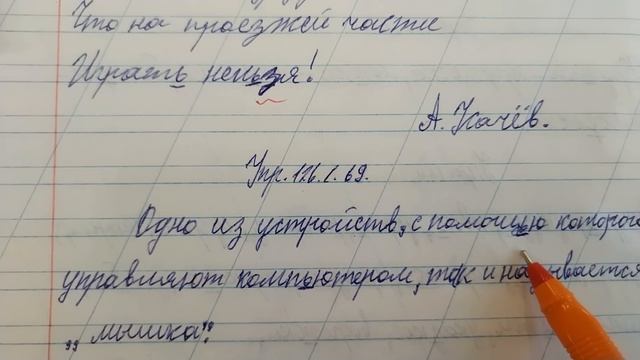 Что на проезжей части
Играть нельзя!
А. Качёв.
Упр. 126. С. 69.
Одно из устройств, с помощью которого
управляют компьютером, так и называется
„мышка".